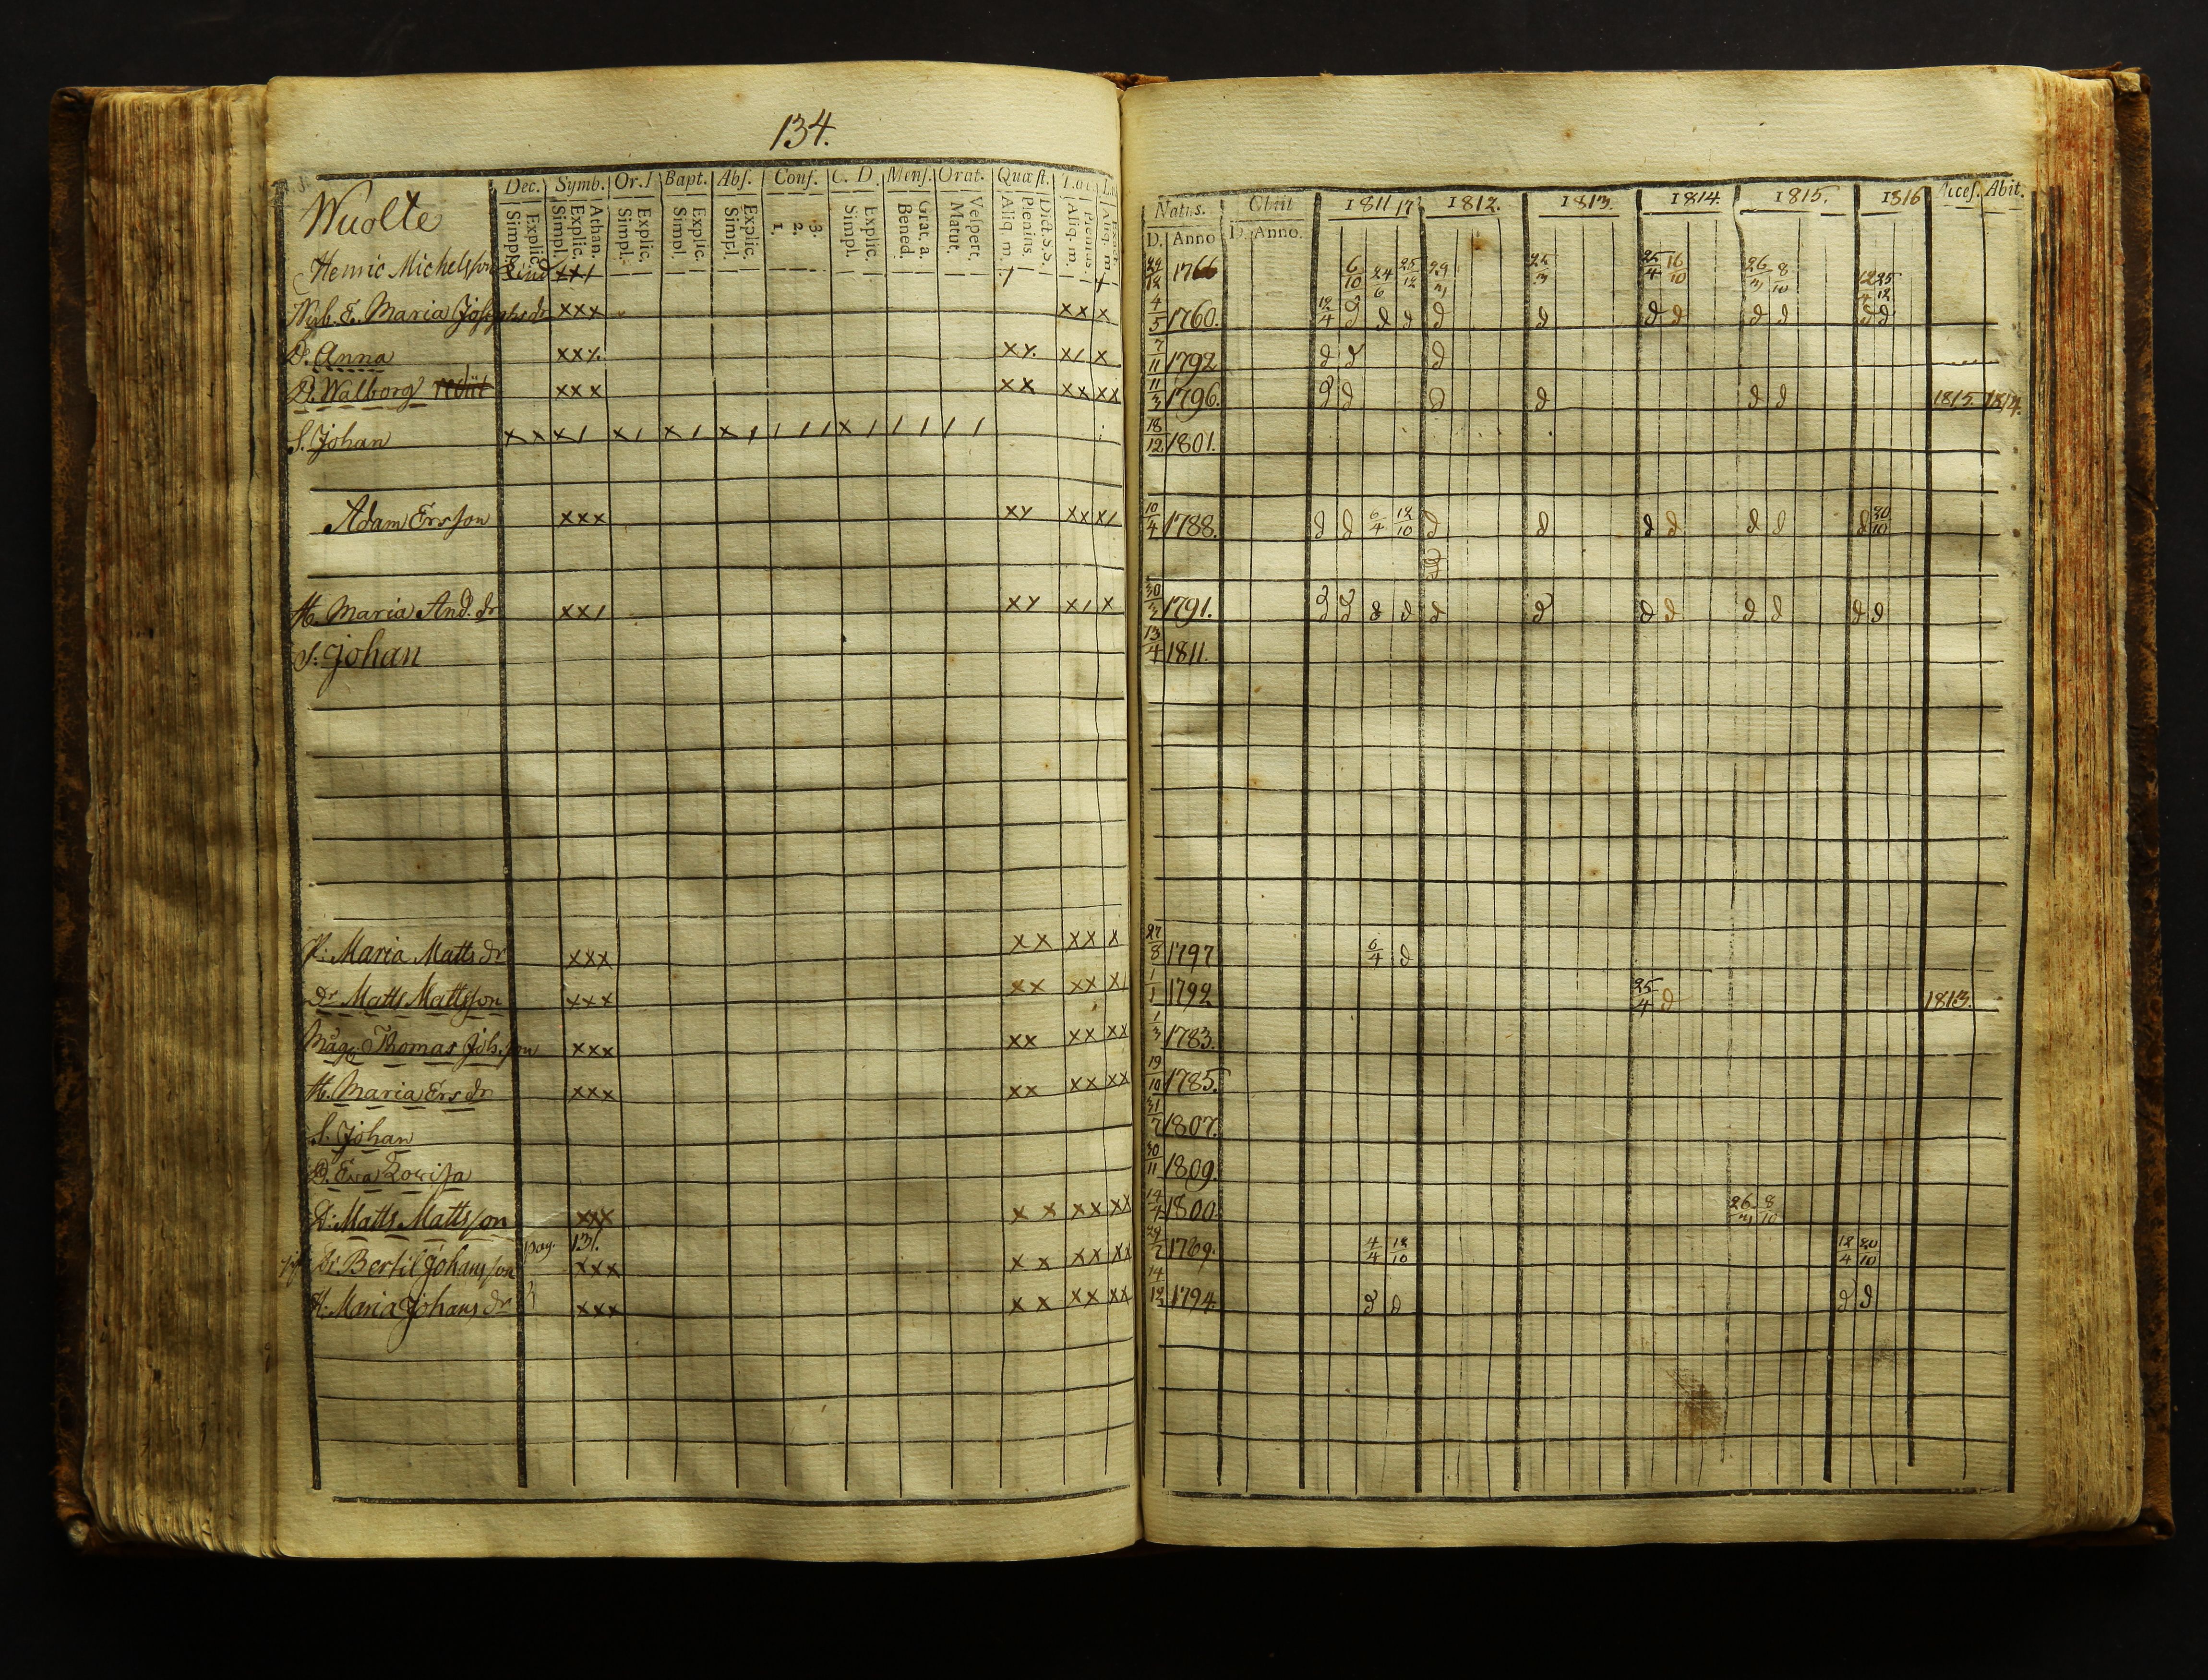 134.
Dec. Symb. Or. Bapt. Abs. Conf. C. D. Mens. Orat. Quæst.
Simpl. Explic. Simpl. Explic. Athan. Simpl. Explic. Simpl. Explic. Simpl. Explic. 1. 2. 3. Simpl. Explic. Bened. Grat. a. Matut. Vespert. Aliq. m. Plenius. Dict. S. S. Aliq. m. Plenius.
Wuolte
Henric Michelsson
Maria Josephsdr xxx xx x
D. Anna xxx xx x/ x
D. Walborg rediit xxx xx xx xx
S. Johan xx x/ x/ x/ x/ / / / x/ / / / /
Adam Ersson xxx xx xx x/
H. Maria And. dr xx/ xx x/ x
S. Johan
P. Maria Matts dr xxx xx xx x
Dr Matts Mattsson xxx xx xx x/
Måg Thomas Joh.son xxx xx xx xx
H. Maria Ers dr xxx xx xx xx
S. Johan
D. Eva Lovisa
D: Matts Mattsson xxx xx xx xx
pag. 131.
Dr. Bertil Johansson xxx xx xx xx
H: Maria Johans dr xxx xx xx xx
Natus. Obiit 1811 1812. 1813. 1814. 1815. 1816 Acces. Abit.
D. Anno D. Anno.
29/12 1766 6/10 24/6 25/12 29/3 25/4 16/10 26/3 8/10
4/5 1760. 12/4 d d d d d d d d d d d
7/11 1792 d d d
11/3 1796. d d d d d d 1815. 1814.
18/12 1801.
10/4 1788. d d 6/4 12/10 d d d d d d d 20/10
30/3 1791. d d d d d d d d d d d d
13/4 1811.
27/8 1797 6/4 d
1/1 1792 25/4 d 1813.
1/3 1783.
19/10 1785.
31/7 1807.
30/11 1809.
14/4 1800 26/3 8/10
29/7 1789. 4/4 12/10 12/4 20/10
14/12 1794 d d d d